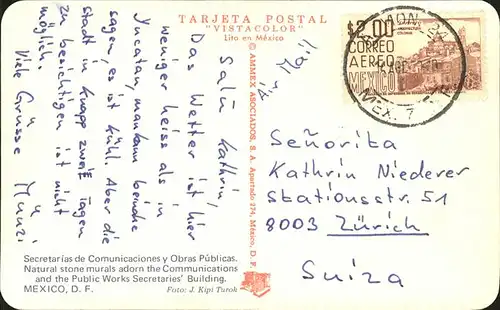 TARJETA POSTAL
"VISTACOLOR"
Lito en México
© AMMEX ASOCIADOS, S. A. Apartado 274, México, D. F.
Air Mail
Salü Kathrin,
Das Wetter ist hier
weniger heiss als in
Yucatan, man kann beinahe
sagen, es ist kühl. Aber die
Stadt in knapp zwei Tagen
zu besichtigen ist nicht
möglich.
Viele Grüsse
Secretarías de Comunicaciones y Obras Públicas.
Natural stone murals adorn the Communications
and the Public Works Secretaries' Building.
MEXICO, D. F.
Foto: J. Kipi Turok
$2.00
CORREO
AEREO
MEXICO
ADN.
MEX. 7
Señorita
Kathrin Niederer
Stationsstr. 51
8003 Zürich
Suiza